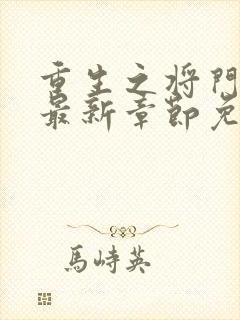 重生之将門
最新章節免
馬峙英